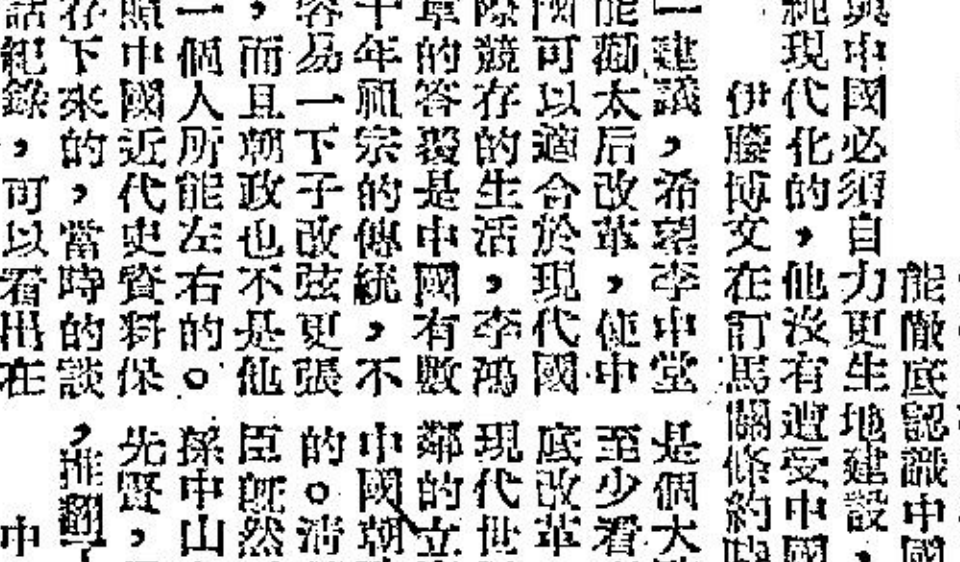 能徹底認識中國
與中國必須自力更生地建設，
純現代化的，他沒有遭受中國
伊藤博文在訂馬關條約時
一建議，希望李中堂
能勸太后改革，使中
國可以適合於現代國
際競存的生活，李鴻
章的答覆是中國有數
千年祖宗的傳統，不
容易一下子改弦更張
，而且朝政也不是他
一個人所能左右的。
照中國近代史資料保
存下來的，當時的談
話紀錄，可以看出在
是個大
至少看
底改革
現代世
鄰的立
中國朝
的。清
臣既然
孫中山
先賢，
，推翻
中